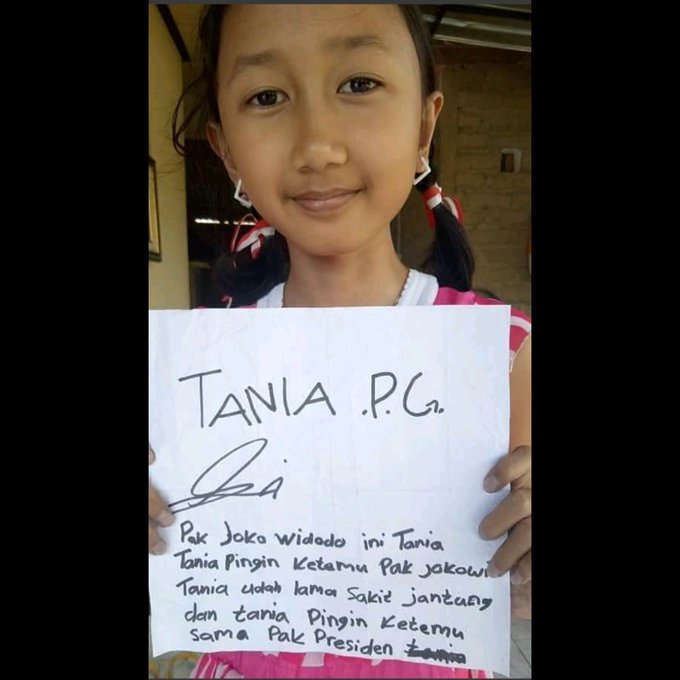 TANIA .P.G.
Pak Joko widodo ini Tania
Tania Pingin Ketemu Pak jokowi
Tania udah lama sakit jantung
dan tania Pingin Ketemu
sama Pak Presiden tania